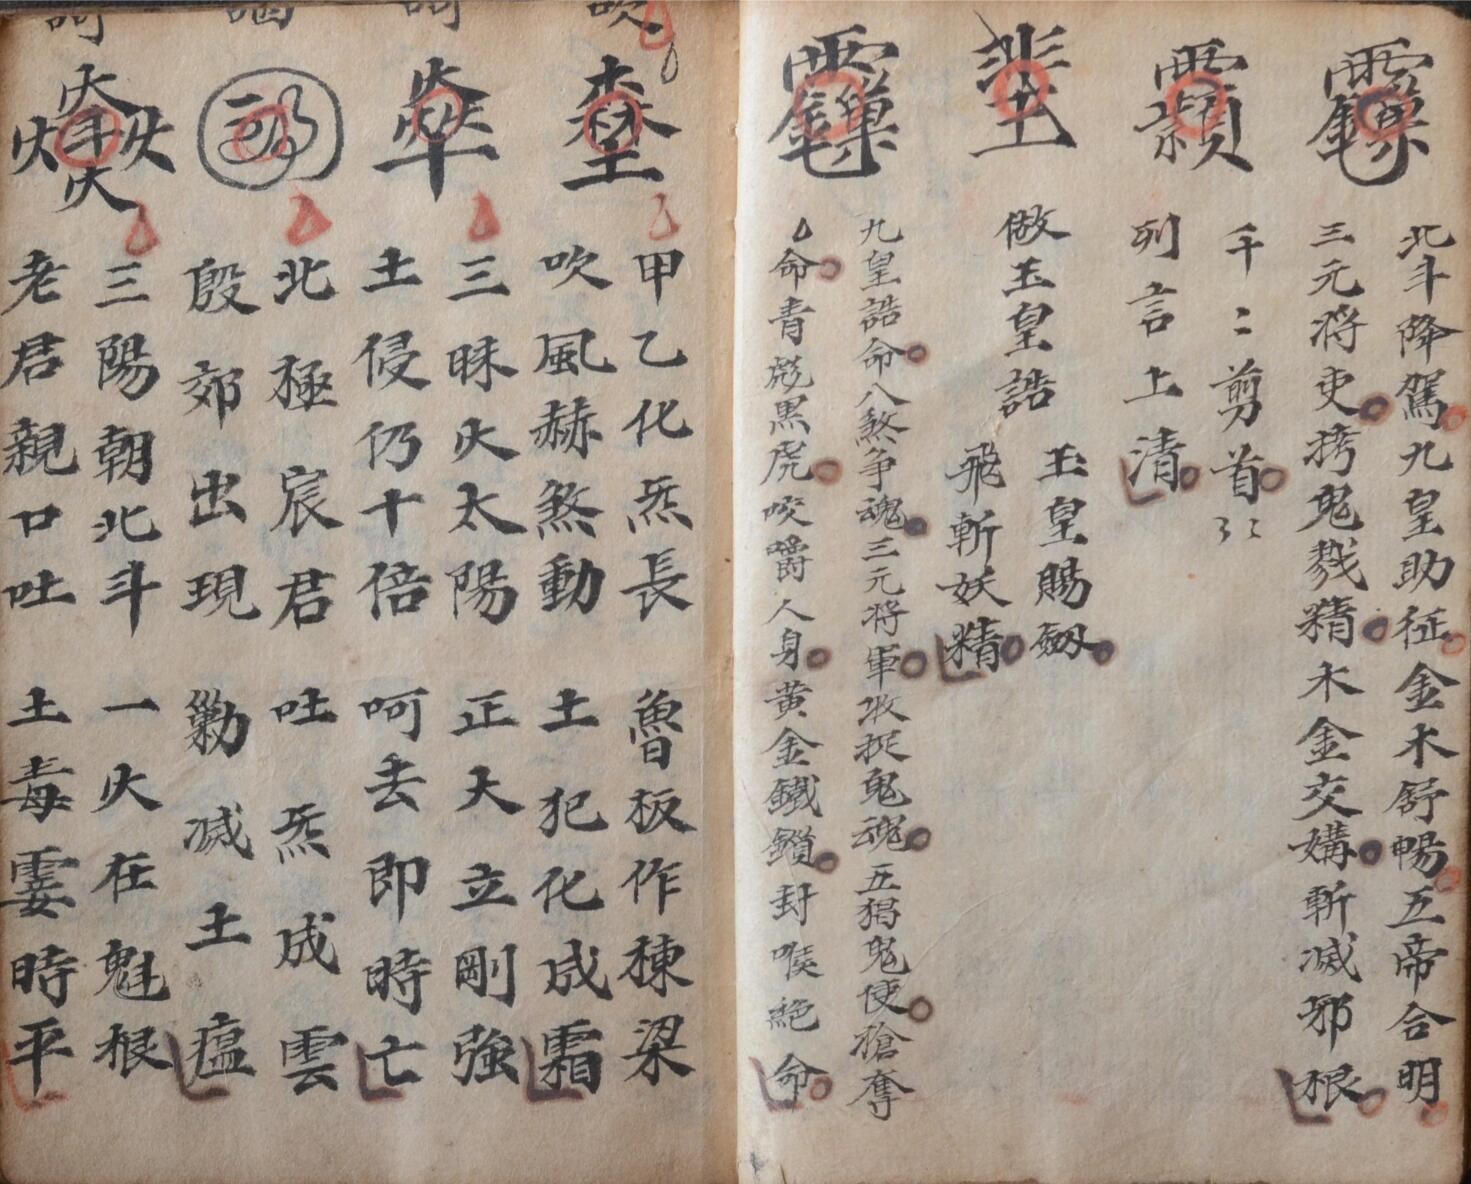 北斗降駕九皇助征金木舒暢五帝合明
三元將吏 鬼戮精木金交媾斬滅邪根
千二剪首
列言上清
做玉皇誥
玉皇賜劔
飛斬妖精
九皇誥命八煞争魂三元将軍收捉鬼魂五猖鬼使搶奪
命青彪黑虎咬嚼人身黄金鐵鎖封喉絶命
吹
甲乙化炁長 魯板作棟梁
吹風赫煞動 土犯化成霜
呵
三昧火太陽 正大立剛強
土侵仍十倍 呵去即時亡
北極宸君 吐炁成雲
殷郊出現 勦滅土瘟
呵
三陽朝北斗 一火在魁根
老君親口吐 土毒霎時平